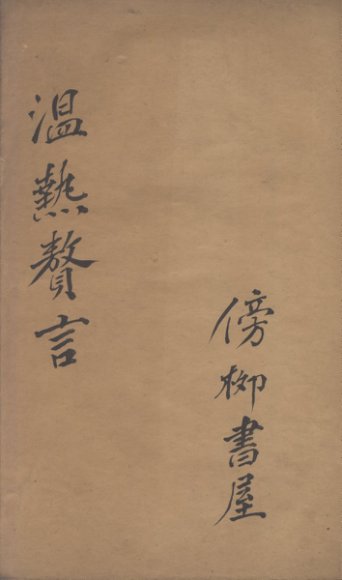 溫熱贅言
傍柳書屋